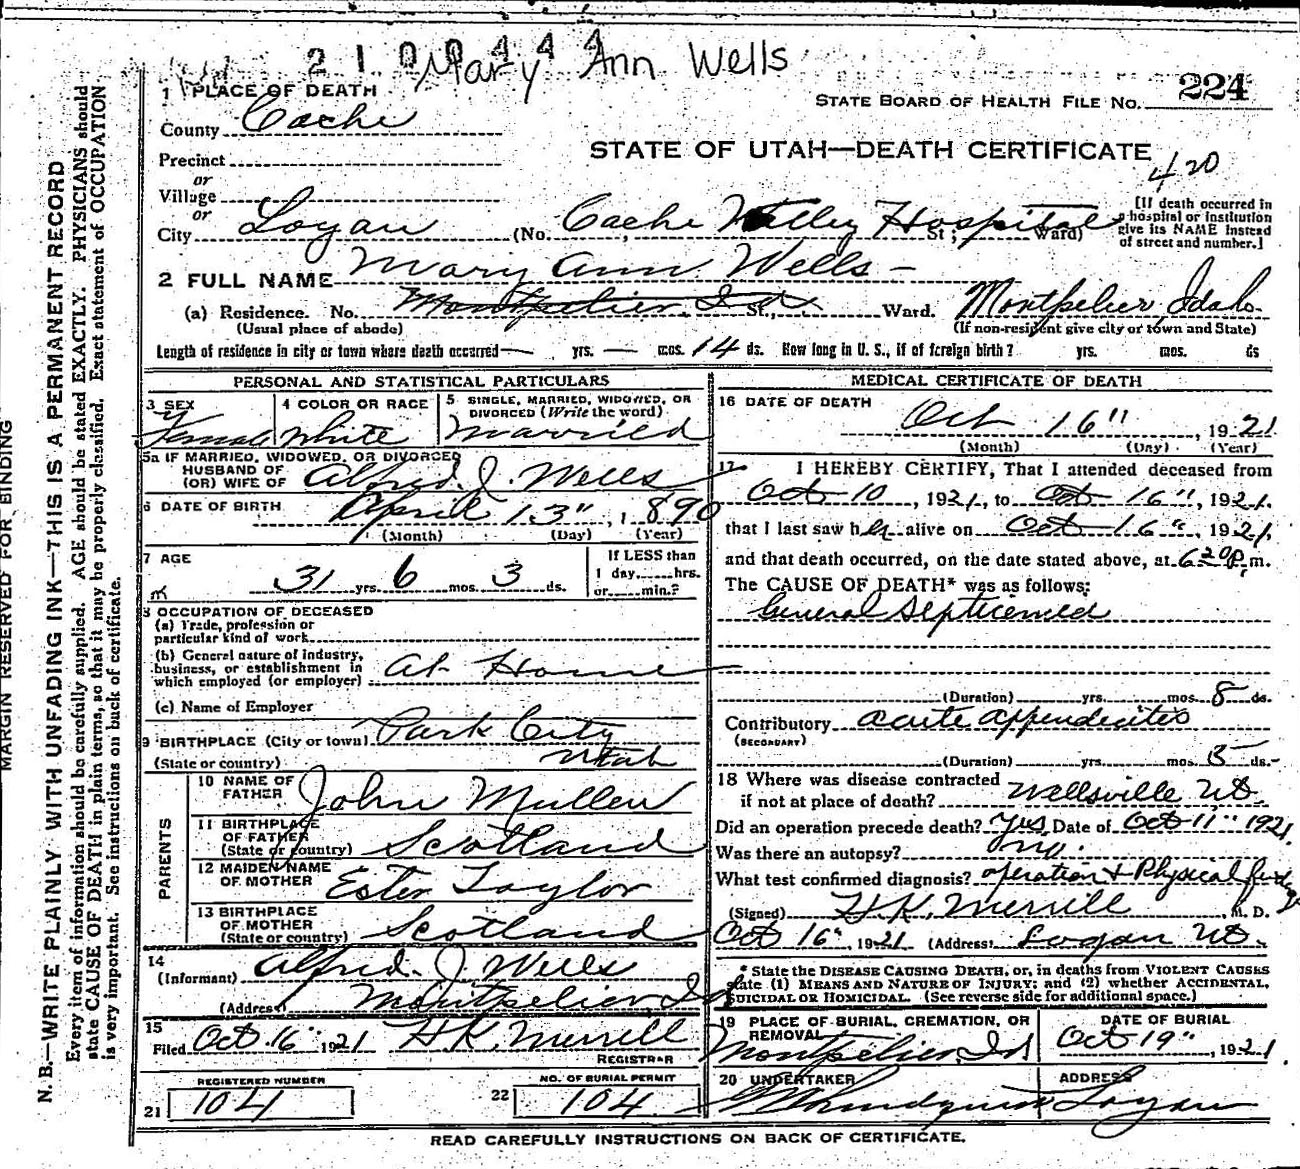 2100444
Mary Ann Wells
1 PLACE OF DEATH
STATE BOARD OF HEALTH FILE NO. 224
County Cache
STATE OF UTAH—DEATH CERTIFICATE
Precinct
420
or
Village
or
City Logan (No. Cache Valley Hospital St.; Ward)
[If death occurred in
a hospital or institution
give its NAME instead
of street and number.]
2 FULL NAME Mary Ann Wells
(a) Residence. No. Montpelier, Ida St., Ward. Montpelier, Idaho
(Usual place of abode) (If non-resident give city or town and State)
Length of residence in city or town where death occurred — yrs. — mos. 14 ds. How long in U. S., if of foreign birth? yrs. mos. ds
PERSONAL AND STATISTICAL PARTICULARS
3 SEX
Female
4 COLOR OR RACE
White
5 SINGLE, MARRIED, WIDOWED, OR
DIVORCED (Write the word)
Married
5a IF MARRIED, WIDOWED, OR DIVORCED
HUSBAND OF
(OR) WIFE OF Alfred. J. Wells
6 DATE OF BIRTH April 13", 1890
(Month) (Day) (Year)
7 AGE
31 yrs. 6 mos. 3 ds.
If LESS than
1 day, hrs.
or min.?
8 OCCUPATION OF DECEASED
(a) Trade, profession or
particular kind of work
(b) General nature of industry,
business, or establishment in
which employed (or employer) At Home
(c) Name of Employer
9 BIRTHPLACE (City or town) Park City
(State or country) Utah
PARENTS
10 NAME OF
FATHER John Mullen
11 BIRTHPLACE
OF FATHER
(State or country) Scotland
12 MAIDEN NAME
OF MOTHER Ester Taylor
13 BIRTHPLACE
OF MOTHER
(State or country) Scotland
14
(Informant) Alfred. J. Wells
(Address) Montpelier, Id
15
Filed Oct. 16" 1921 H.K. Merrill
REGISTRAR
REGISTERED NUMBER
21 104
NO. OF BURIAL PERMIT
22 104
MEDICAL CERTIFICATE OF DEATH
16 DATE OF DEATH
Oct 16", 1921
(Month) (Day) (Year)
17 I HEREBY CERTIFY, That I attended deceased from
Oct 10, 1921, to Oct 16", 1921.
that I last saw her alive on Oct 16", 1921,
and that death occurred, on the date stated above, at 6 20 P.m.
The CAUSE OF DEATH* was as follows:
General Septicemia
(Duration) yrs. mos. 8 ds.
Contributory acute appendicites
(SECONDARY)
(Duration) yrs. mos. ds.
18 Where was disease contracted
if not at place of death? Wellsville Ut.
Did an operation precede death? Yes. Date of Oct 11" 1921.
Was there an autopsy? no.
What test confirmed diagnosis? operation & Physical findings
(Signed) H.K. Merrill, M. D.
Oct 16", 1921 (Address) Logan Ut.
* State the DISEASE CAUSING DEATH, or, in deaths from VIOLENT CAUSES
state (1) MEANS AND NATURE OF INJURY; and (2) whether ACCIDENTAL,
SUICIDAL OR HOMICIDAL. (See reverse side for additional space.)
19 PLACE OF BURIAL, CREMATION, OR
REMOVAL
Montpelier, Id
DATE OF BURIAL
Oct 19", 1921
20 UNDERTAKER
ADDRESS
Logan
READ CAREFULLY INSTRUCTIONS ON BACK OF CERTIFICATE.
MARGIN RESERVED FOR BINDING
N. B.—WRITE PLAINLY WITH UNFADING INK—THIS IS A PERMANENT RECORD
Every item of information should be carefully supplied. AGE should be stated EXACTLY. PHYSICIANS should
state CAUSE OF DEATH in plain terms, so that it may be properly classified. Exact statement of OCCUPATION
is very important. See instructions on back of certificate.